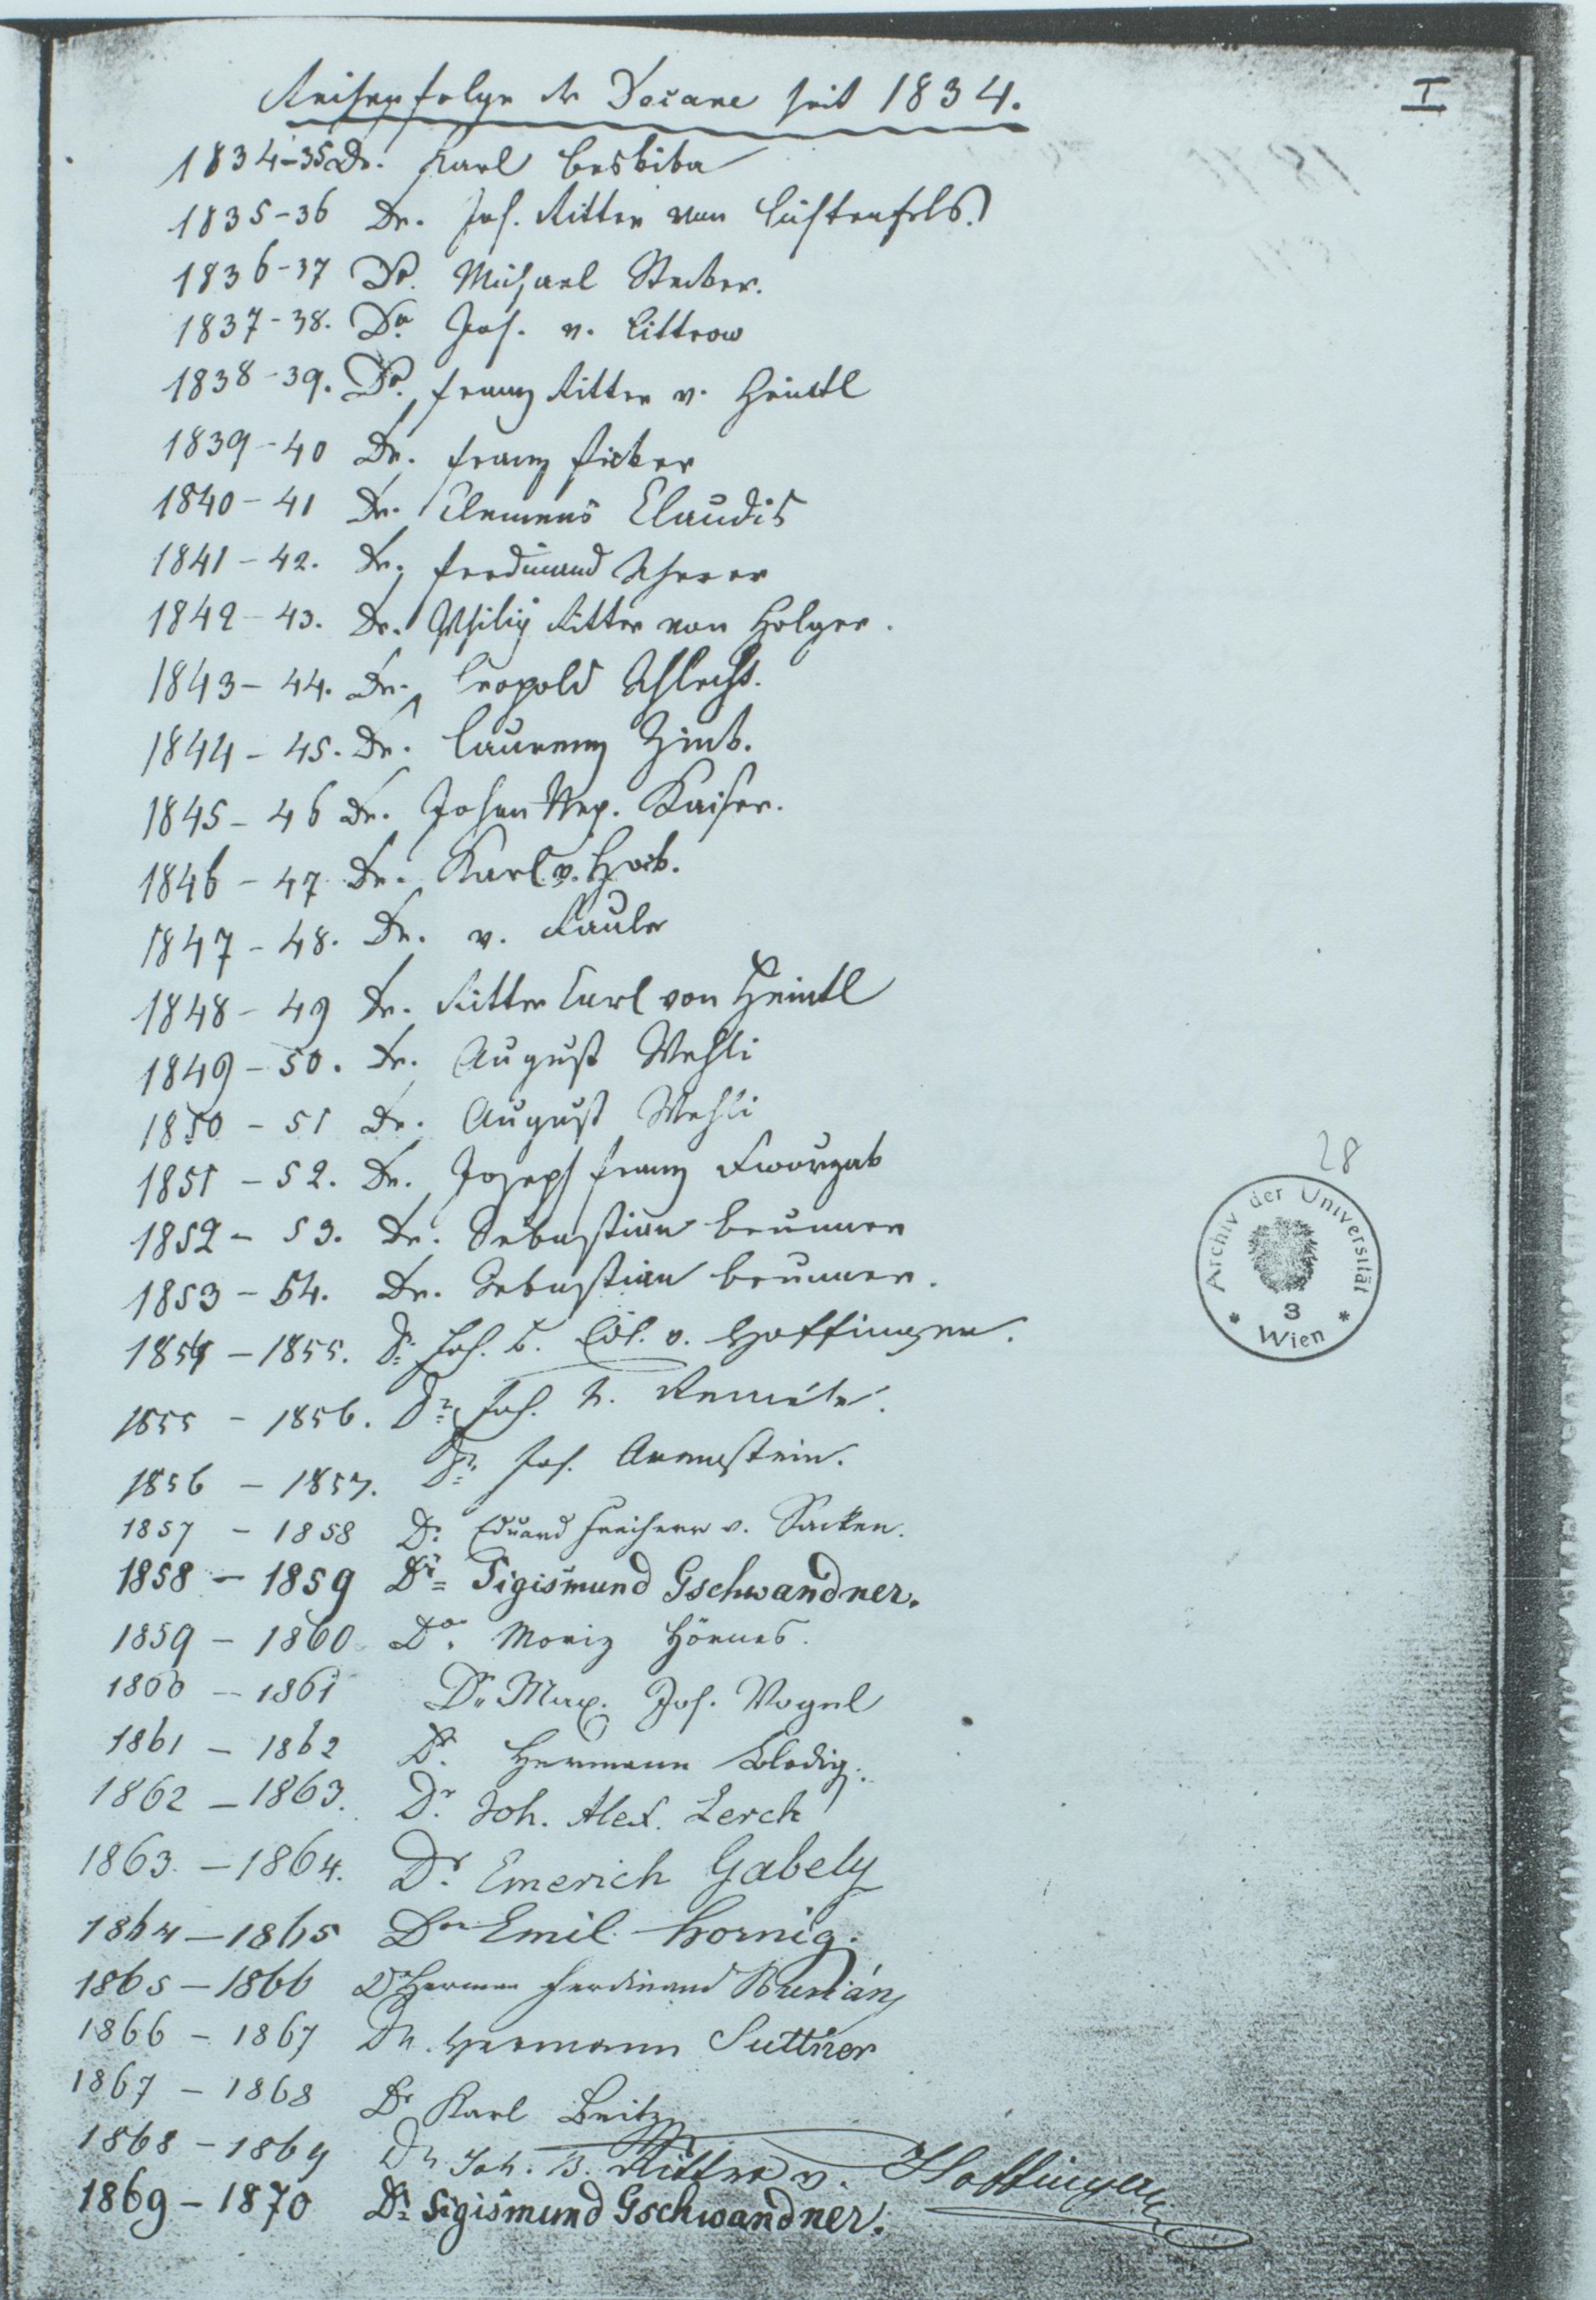 I
Reihenfolge der Decane seit 1834.
1834-35 Dr. Karl Beskiba
1835-36 Dr. Jos. Ritter von Lichtenfels.
1836-37 Dr. Michael Stecker.
1837-38. Dr. Jos. v. Littrow
1838-39. Dr. Franz Ritter v. Heintl
1839-40 Dr. Franz Ficker
1840-41 Dr. Clemens Claudis
1841-42. Dr. Ferdinand Scherer
1842-43. Dr. Philip Ritter von Holger.
1843-44. Dr. Leopold Schlecht.
1844-45. Dr. Laurenz Zink.
1845-46 Dr. Johan Nep. Kaiser.
1846-47 Dr. Karl v. Hock.
1847-48. Dr. v. Kauler
1848-49 Dr. Ritter Carl von Heintl
1849-50. Dr. August Wehli
1850-51 Dr. August Wehli
1851-52. Dr. Joseph Franz Kworzak
1852-53. Dr. Sebastian Brunner
1853-54. Dr. Sebastian Brunner.
1854-1855. Dr. Joh. B. Edl. v. Hoffinger.
1855-1856. Dr. Joh. N. Remele.
1856-1857. Dr. Jos. Arenstein.
1857-1858 Dr. Eduard Freiherr v. Sacken.
1858-1859 Dr. Sigismund Gschwandner.
1859-1860 Dr. Moriz Hörnes.
1860-1861 Dr. Max. Jos. Vogel
1861-1862 Dr. Hermann Blodig.
1862-1863. Dr. Joh. Alex. Lerch
1863-1864. Dr. Emerich Gabely
1864-1865 Dr. Emil Hornig.
1865-1866 Dr. Herman Ferdinand Burián
1866-1867 Dr. Hermann Suttner
1867-1868 Dr. Karl
1868-1869 Dr. Joh. B. Ritter v. Hoffinger
1869-1870 Dr. Sigismund Gschwandner.
28
Archiv der Universität
3
* Wien *